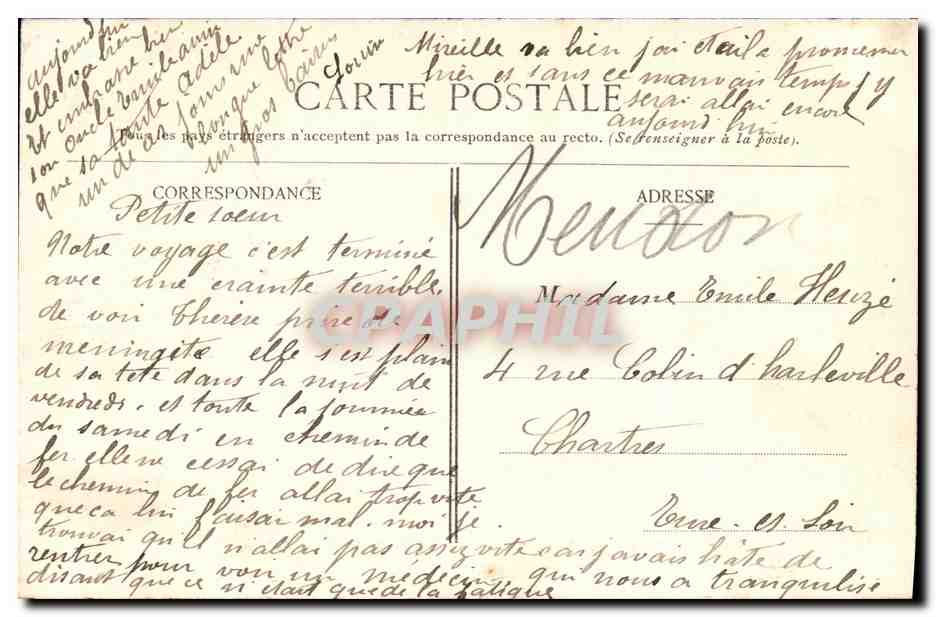 CARTE POSTALE
Tous les pays étrangers n'acceptent pas la correspondance au recto. (Se renseigner à la poste).
CORRESPONDANCE
Petite soeur
Notre voyage c'est terminé
avec une crainte terrible
de voir Therese prise de
meningite elle s'est plain
de sa tete dans la nuit de
vendredi. et toute la journée
du samedi en chemin de
fer elle ne cessai de dire que
le chemin de fer allai trop vite
que ca lui faisai mal. moi je
trouvai qu'il n'allai pas assez vite car j'avais hâte de
rentrer pour voir un médecin qui nous a tranquilisé
disant que ce n'était que de la fatigue
aujourd'hui
elle va bien
et embrasse bien
son oncle Emile ainsi
que sa tante Adele
un de ces jours une
longue lettre
un gros baiser
Louise
Mireille va bien j'ai etait la promener
hier et sans ce mauvais temps j'y
serai allai encore
aujourd'hui
ADRESSE
Meudon
Madame Emile Heuzé
4 rue Colin d'harleville
Chartres
Eure-et-Loir
CPAPHIL